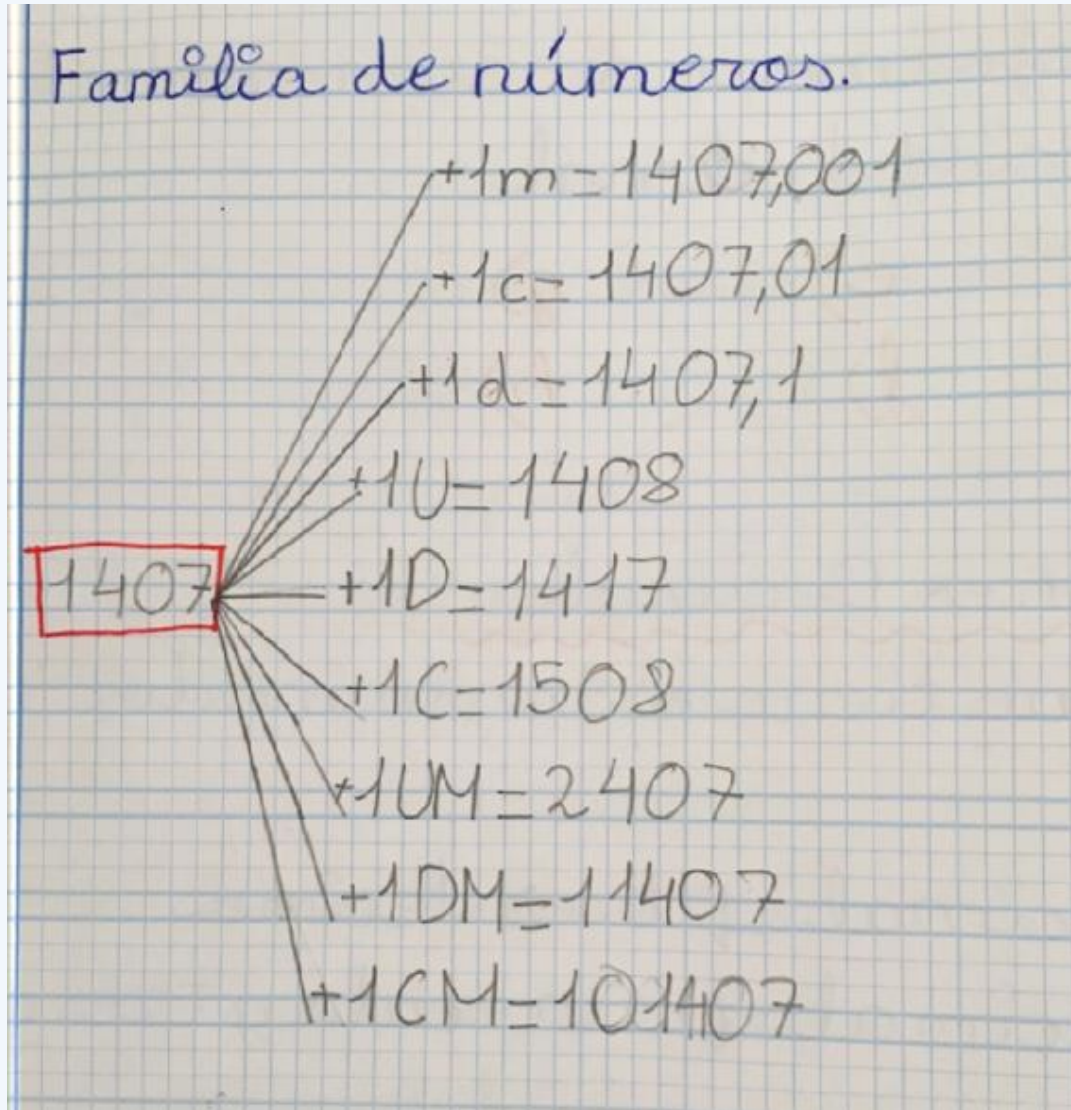 Familia de números.
+1m=1407,001
+1c=1407,01
+1d=1407,1
+1U=1408
1407
+1D=1417
+1C=1508
+1UM=2407
+1DM=11407
+1CM=101407